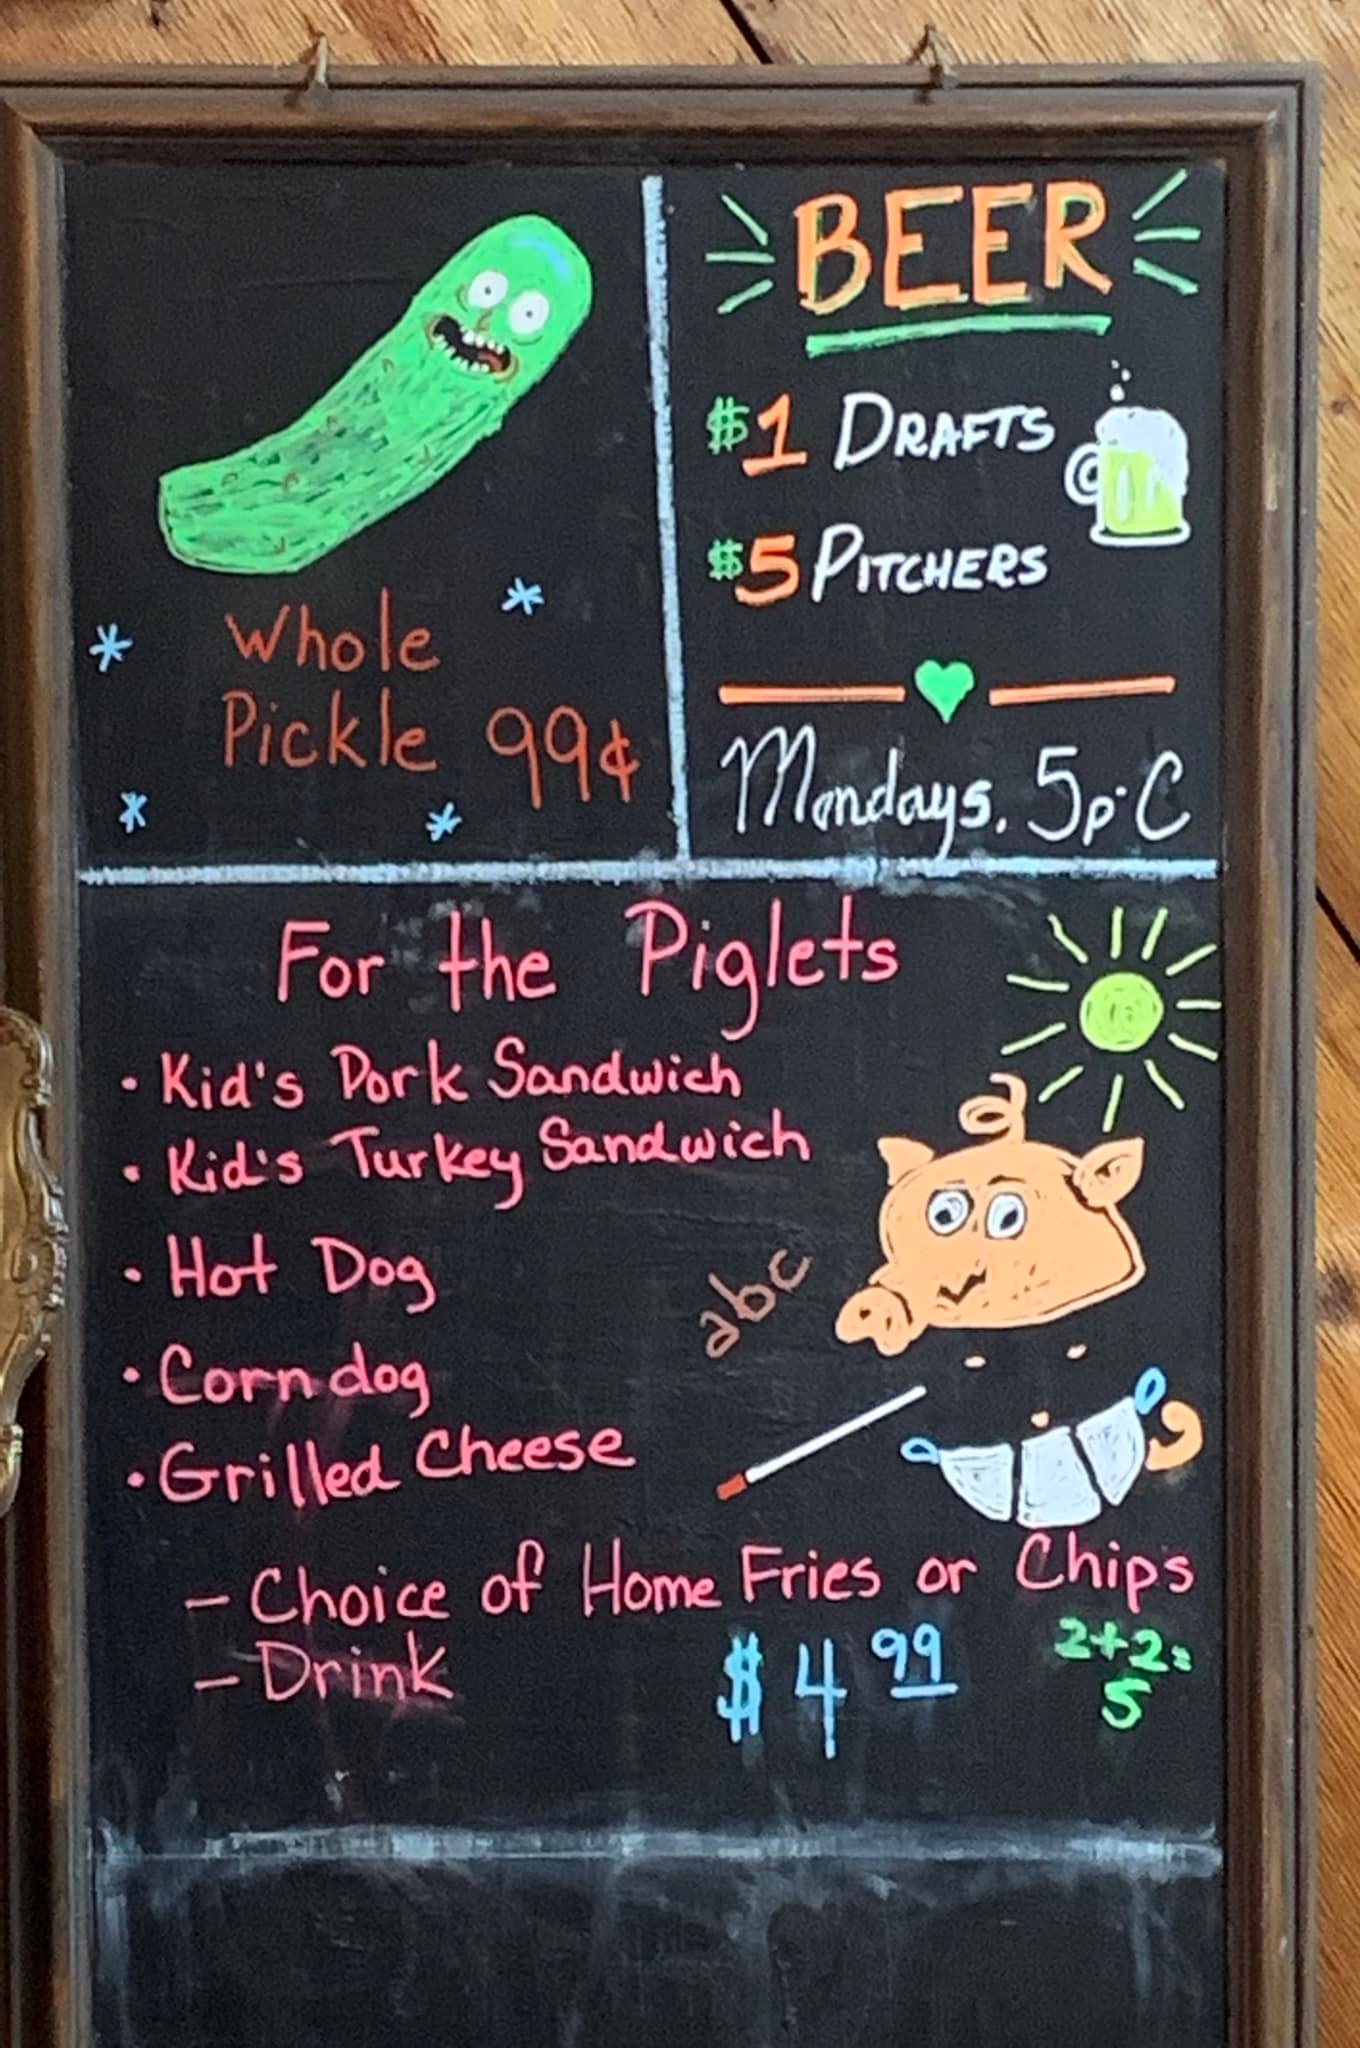 Whole
Pickle 99¢
BEER
$1 DRAFTS
$5 PITCHERS
Mondays. 5p-C
For the Piglets
• Kid's Pork Sandwich
• Kid's Turkey Sandwich
• Hot Dog
• Corndog
• Grilled Cheese
abc
- Choice of Home Fries or Chips
- Drink
$4 99
2+2=
5